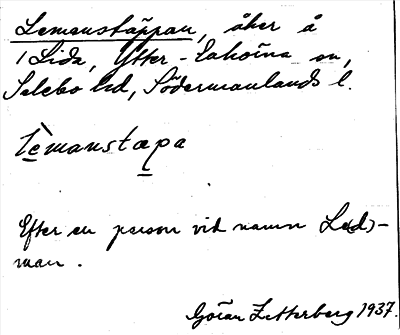 Lemanstäppan, åker å
1 Lida, Ytter-Selö sn,
Selebo hd, Södermanlands l.
lèmanstæpa
Efter en person vid namn Le(d)-
man.
Göran Zetterberg 1937.